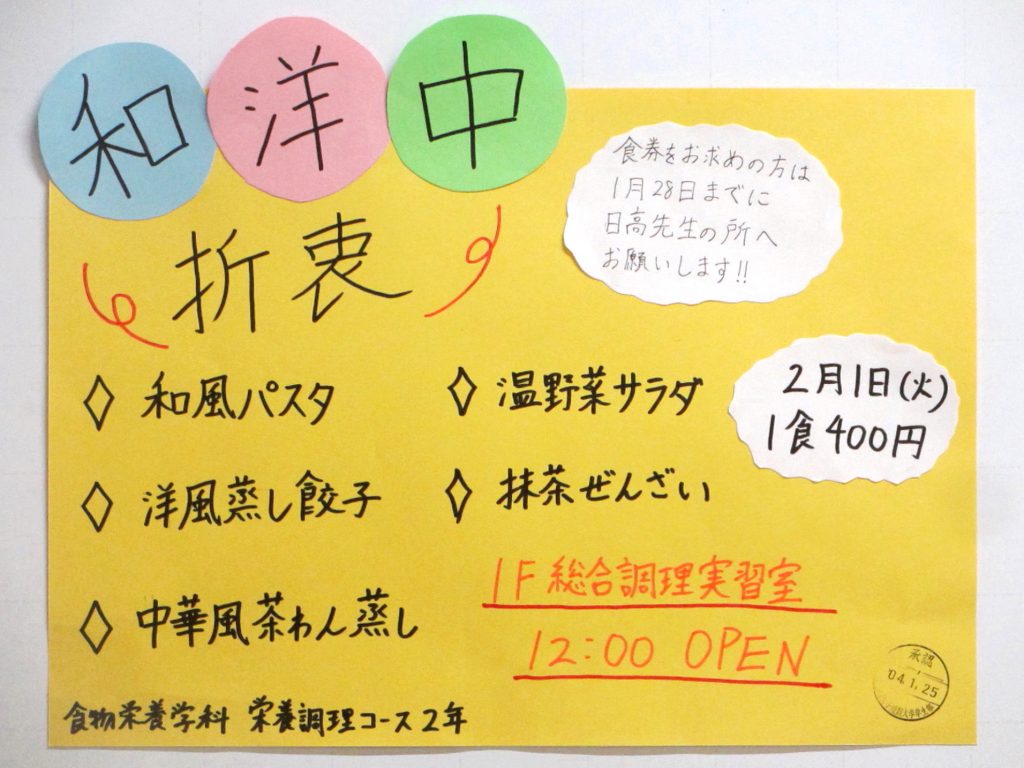 和洋中
折衷
食券をお求めの方は
1月28日までに
日高先生の所へ
お願いします!!
◇ 和風パスタ
◇ 洋風蒸し餃子
◇ 中華風茶わん蒸し
◇ 温野菜サラダ
◇ 抹茶ぜんざい
2月1日(火)
1食400円
1F 総合調理実習室
12:00 OPEN
食物栄養学科 栄養調理コース2年
承認
'04.1.25